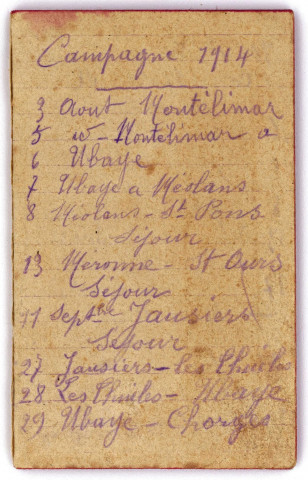 Campagne 1914
3 Aout Montélimar
5 id - Montélimar a
6 Ubaye
7 Ubaye a Méolans
8 Méolans - St Pons
Séjour
13 Méronne - St Ours
Séjour
11 Septbre Jausiers
Séjour
27 Jausiers - les Thuiles
28 Les Thuiles - Ubaye
29 Ubaye - Chorges